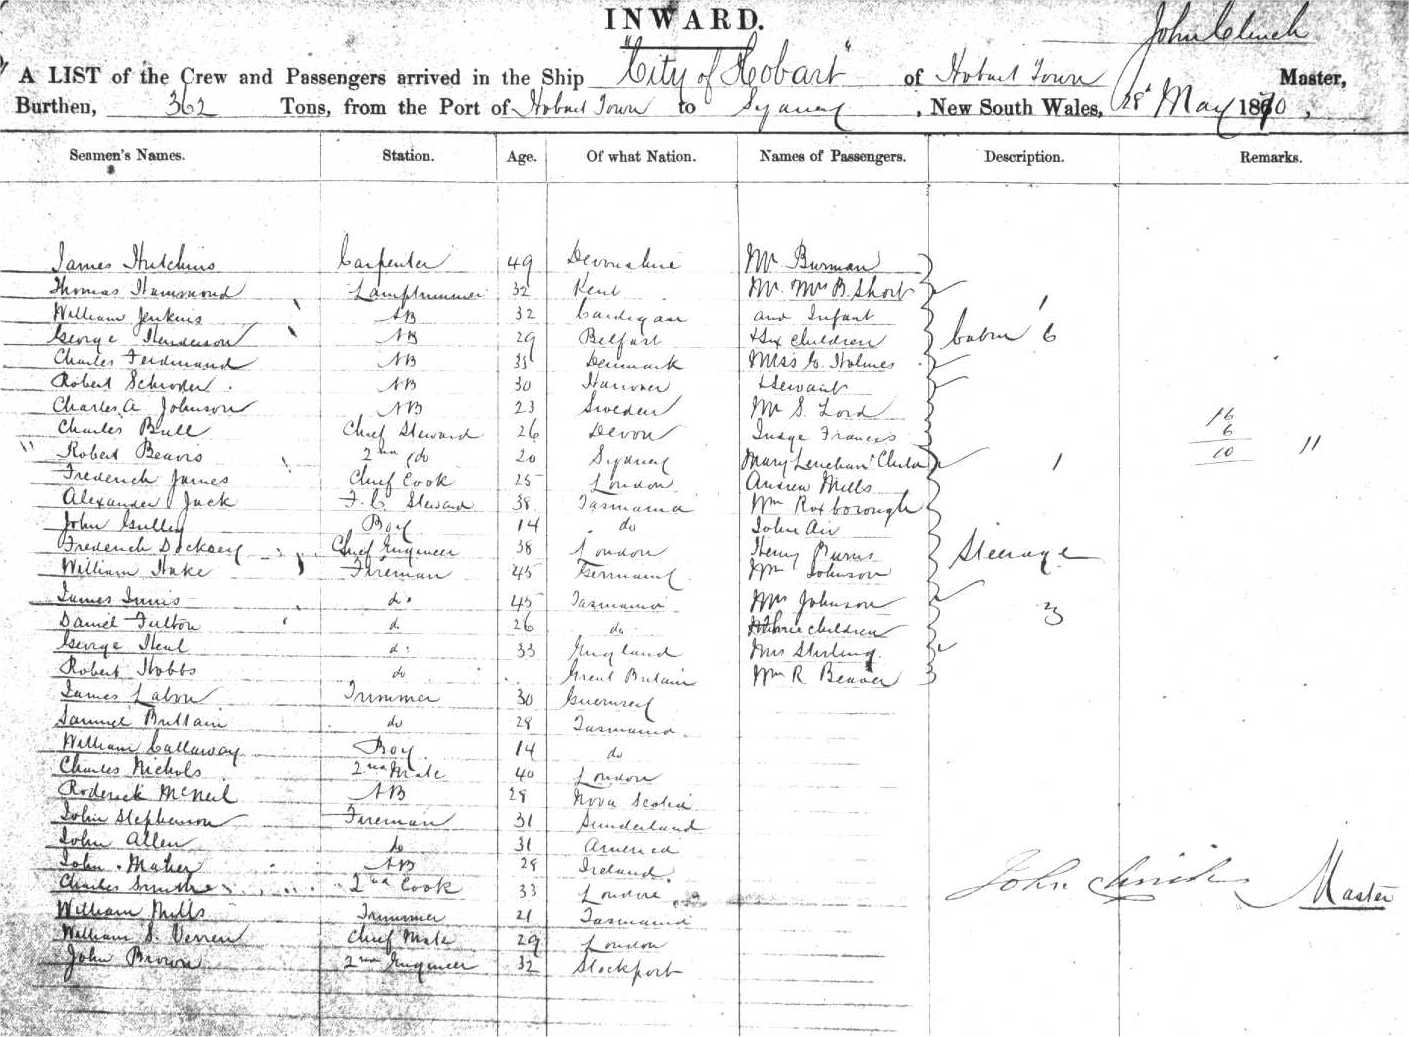 INWARD.
John Clinch
A LIST of the Crew and Passengers arrived in the Ship "City of Hobart" of Hobart Town Master,
Burthen, 362 Tons, from the Port of Hobart Town to Sydney, New South Wales, 28 May 1870,
Seamen's Names. Station. Age. Of what Nation. Names of Passengers. Description. Remarks.
James Hutchins Carpenter 49 Devonshire Mr Burman
Thomas Hammond Lamptrimmer 32 Kent Mr Mrs B. Short
William Jenkins AB 32 Cardigan and Infant 1
George Henderson AB 29 Belfast & Six children Cabin 6
Charles Ferdinand AB 35 Denmark Miss G. Holmes
Robert Schroder AB 30 Hanover & Servant
Charles A Johnson AB 23 Sweden Mr S. Lord 16
Charles Bull Chief Steward 26 Devon Judge Francis 6
" Robert Beavis 2nd do 20 Sydney Mary Lenehan Child 1 10 11
Frederick James Chief Cook 25 London Andrew Mills
Alexander Jack F. C. Steward 38 Tasmania Wm Roxborough
John Gulley Boy 14 do John Air
Frederick Docksey Chief Engineer 38 London Henry Burns Steerage
William Hake Fireman 45 Germany Wm Johnson
James Innis do 45 Tasmania Mrs Johnson
Daniel Fulton do 26 do Three children 3
George Heal do 33 England Mrs Stirling
Robert Hobbs do Great Britain Wm R Beaver
James Labon Trimmer 30 Guernsey
Samuel Brittain do 28 Tasmania
William Callaway Boy 14 do
Charles Nichols 2nd Mate 40 London
Roderick McNeil AB 28 Nova Scotia
John Stephenson Fireman 31 Sunderland
John Allen do 31 America
John Maher AB 28 Ireland
Charles Smith 2nd Cook 33 London John Clinch Master
William Mills Trimmer 21 Tasmania
William S. Verren Chief Mate 29 London
John Brown 2nd Engineer 32 Stockport